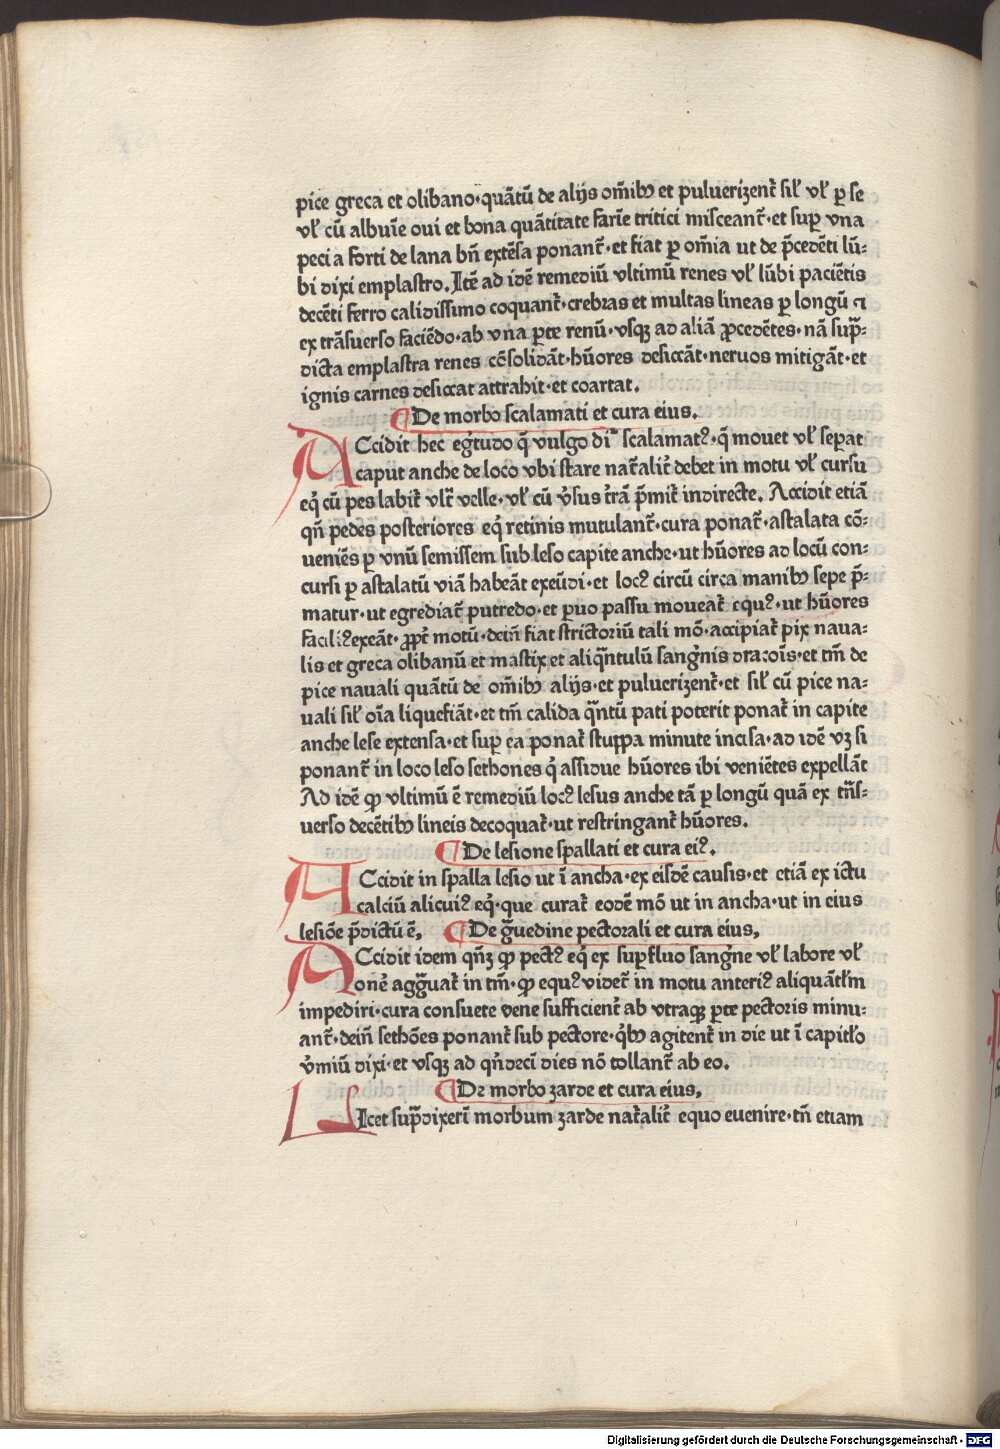 pice greca et olibano·quātū de alijs om̄ibꝰ et puluerizent᷑ sil᷑ vl᷑ ꝑ se
vl᷑ cū albuīe oui et bona quātitate farīe tritici misceant᷑·et suꝑ vna
pecia forti de lana bn̄ extēsa ponant᷑·et fiat ꝑ om̄ia ut de p̄cedēti lū⸗
bi dixi emplastro. Itē ad idē remediū vltimū renes vl᷑ lūbi paciētis
decēti ferro calidissimo coquant᷑·crebras et multas lineas ꝑ longū ⁊
ex trāsuerso faciēdo·ab vna ꝑte renū·vsqꝫ ad aliā ꝓcedētes·nā sup̄⸗
dicta emplastra renes cōsolidāt·hūores desiccāt·neruos mitigāt·et
ignis carnes desiccat attrahit·et coartat.
¶ De morbo scalamati et cura eius.
ACcidit hec eg̓tudo q̄ vulgo di᷑ scalamatꝰ·q̄ mouet vl᷑ seꝑat
caput anche de loco vbi stare nat᷑alit᷑ debet in motu vl᷑ cursu
eq̓ cū pes labit᷑ vlt᷑ velle·vl᷑ cū v̓sus t᷑rā p̄mit᷑ indirecte. Accidit etiā
qn̄ pedes posteriores eq̓ retinis mutulant᷑·cura ponat᷑·astalata cō⸗
ueniēs ꝑ vnū semissem sub leso capite anche·ut hūores ad locū con⸗
cursi ꝑ astalatū viā habeāt exeūdi·et locꝰ circū circa manibꝰ sepe p̄⸗
matur·ut egrediat᷑ putredo·et ꝑuo passu moueat᷑ equꝰ·ut hūores
faciliꝰ exeāt·ꝓpt᷑ motū·dein̄ fiat strictoriū tali mō·accipiat᷑ pix naua⸗
lis et greca olibanū et mastix et aliq̄ntulū sang̓nis draco᷑is·et tm̄ de
pice nauali quātū de om̄ibꝰ alijs·et puluerizent᷑·et sil᷑ cū pice na⸗
uali sil᷑ oīa liquefiāt·et tm̄ calida q̄ntū pati poterit ponat᷑ in capite
anche lese extensa·et suꝑ ea ponat᷑ stuppa minute incisa·ad idē vꝫ si
ponant᷑ in loco leso sethones q̓ assidue hūores ibi veniētes expellāt
Ad idē ꝙ vltimū ē remediū locꝰ lesus anche tā ꝑ longū quā ex tn̄s⸗
uerso decētibꝰ lineis decoquat᷑·ut restringant᷑ hūores.
¶ De lesione spallati et cura eiꝰ.
ACcidit in spalla lesio ut ī ancha·ex eisdē causis·et etiā ex ictu
calciū alicuiꝰ eq̓·que curat᷑ eodē mō ut in ancha·ut in eius
lesiōe p̄dictū ē. ¶ De g̓uedine pectorali et cura eius,
ACcidit idem qn̄ꝫ ꝙ pectꝰ eq̓ ex suꝑfluo sang̓ne vl᷑ labore vl᷑
one᷑ agg̓uat᷑ in tm̄·ꝙ equꝰ videt᷑ in motu anteriꝰ aliquātl᷑m
impediri·cura consuete vene sufficient᷑ ab vtraqꝫ ꝑte pectoris minu⸗
ant᷑·dein̄ sethōes ponant᷑ sub pectore·q̓bꝰ agitent᷑ in die ut ī capitl᷑o
v̓miū dixi·et vsqꝫ ad qn̄decī dies nō tollant᷑ ab eo.
¶ De morbo zarde et cura eius,
LIcet sup̄dixerī morbum zarde nat᷑alit᷑ equo euenire·tn̄ etiam
Digitalisierung gefördert durch die Deutsche Forschungsgemeinschaft - DFG